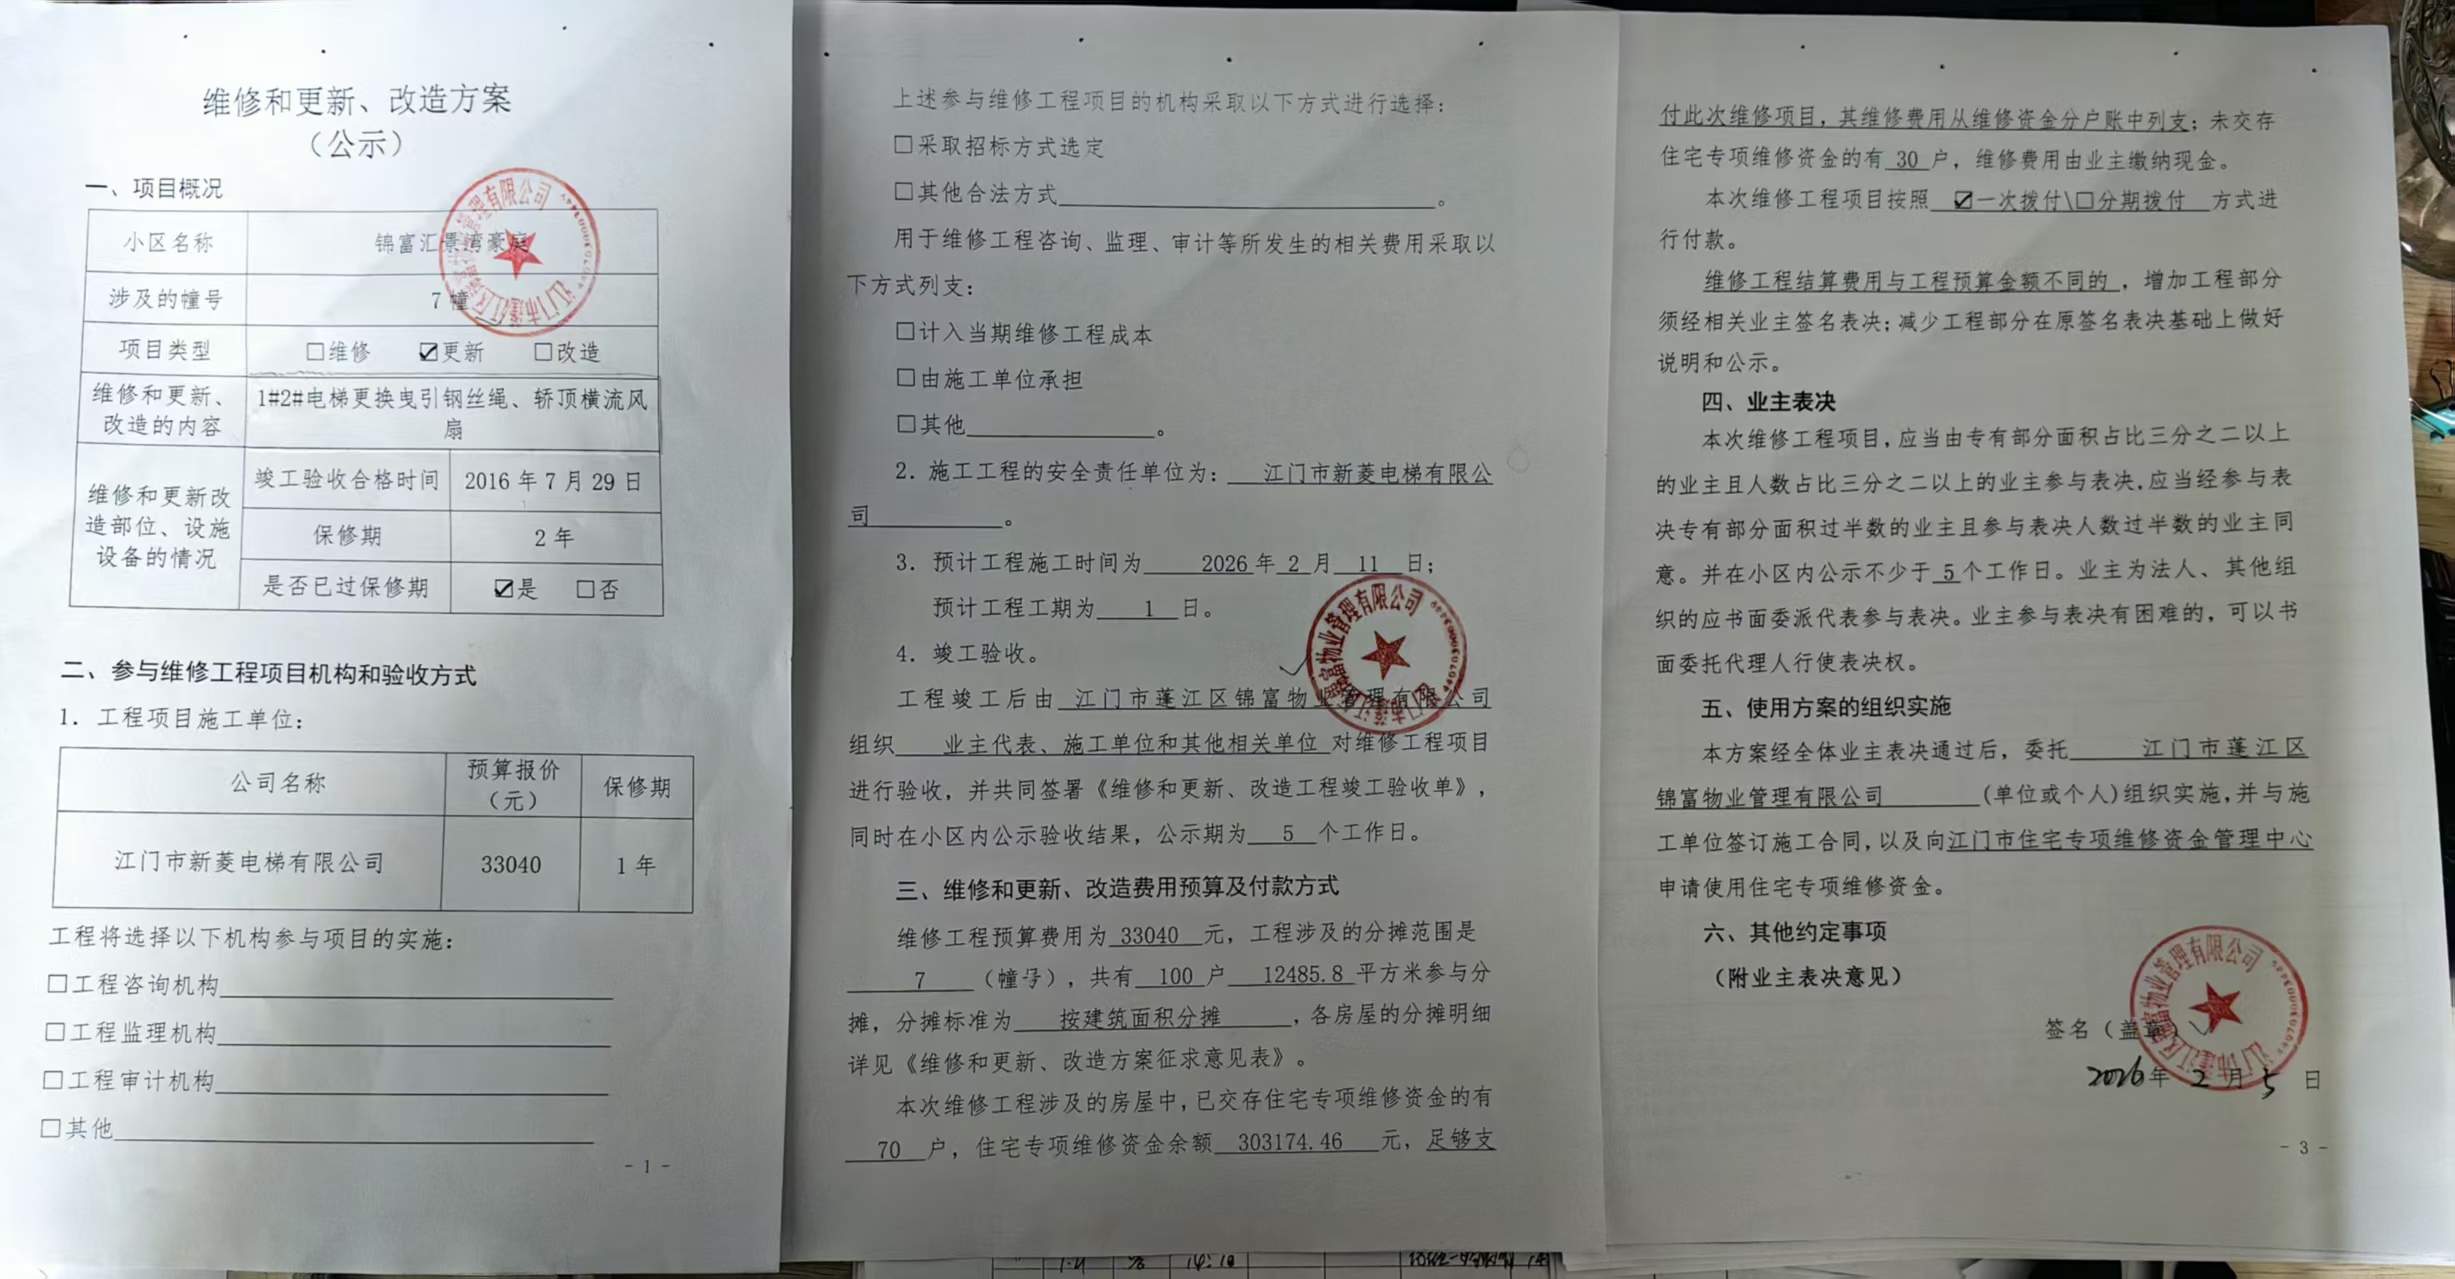 维修和更新、改造方案
（公示）
一、项目概况
小区名称 锦富汇景湾豪庭
涉及的幢号 7幢
项目类型 □维修 ☑更新 □改造
维修和更新、改造的内容 1#2#电梯更换曳引钢丝绳、轿顶横流风扇
维修和更新改造部位、设施设备的情况
竣工验收合格时间 2016年7月29日
保修期 2年
是否已过保修期 ☑是 □否
二、参与维修工程项目机构和验收方式
1. 工程项目施工单位:
公司名称 预算报价（元） 保修期
江门市新菱电梯有限公司 33040 1年
工程将选择以下机构参与项目的实施:
□工程咨询机构
□工程监理机构
□工程审计机构
□其他
- 1 -
上述参与维修工程项目的机构采取以下方式进行选择:
□采取招标方式选定
□其他合法方式 。
用于维修工程咨询、监理、审计等所发生的相关费用采取以
下方式列支:
□计入当期维修工程成本
□由施工单位承担
□其他 。
2. 施工工程的安全责任单位为: 江门市新菱电梯有限公
司 。
3. 预计工程施工时间为 2026 年 2 月 11 日;
预计工程工期为 1 日。
4. 竣工验收。
工程竣工后由 江门市蓬江区锦富物业管理有限公司
组织 业主代表、施工单位和其他相关单位 对维修工程项目
进行验收，并共同签署《维修和更新、改造工程竣工验收单》，
同时在小区内公示验收结果，公示期为 5 个工作日。
三、维修和更新、改造费用预算及付款方式
维修工程预算费用为 33040 元，工程涉及的分摊范围是
7 （幢号），共有 100 户 12485.8 平方米参与分
摊，分摊标准为 按建筑面积分摊 ，各房屋的分摊明细
详见《维修和更新、改造方案征求意见表》。
本次维修工程涉及的房屋中，已交存住宅专项维修资金的有
70 户，住宅专项维修资金余额 303174.46 元，足够支
付此次维修项目，其维修费用从维修资金分户账中列支；未交存
住宅专项维修资金的有 30 户，维修费用由业主缴纳现金。
本次维修工程项目按照 ☑一次拨付\□分期拨付 方式进
行付款。
维修工程结算费用与工程预算金额不同的 ，增加工程部分
须经相关业主签名表决；减少工程部分在原签名表决基础上做好
说明和公示。
四、业主表决
本次维修工程项目，应当由专有部分面积占比三分之二以上
的业主且人数占比三分之二以上的业主参与表决，应当经参与表
决专有部分面积过半数的业主且参与表决人数过半数的业主同
意。并在小区内公示不少于 5 个工作日。业主为法人、其他组
织的应书面委派代表参与表决。业主参与表决有困难的，可以书
面委托代理人行使表决权。
五、使用方案的组织实施
本方案经全体业主表决通过后，委托 江门市蓬江区
锦富物业管理有限公司 (单位或个人)组织实施，并与施
工单位签订施工合同，以及向江门市住宅专项维修资金管理中心
申请使用住宅专项维修资金。
六、其他约定事项
（附业主表决意见）
签名（盖章）
2026年 2月 5日
- 3 -
江门市蓬江区锦富物业管理有限公司